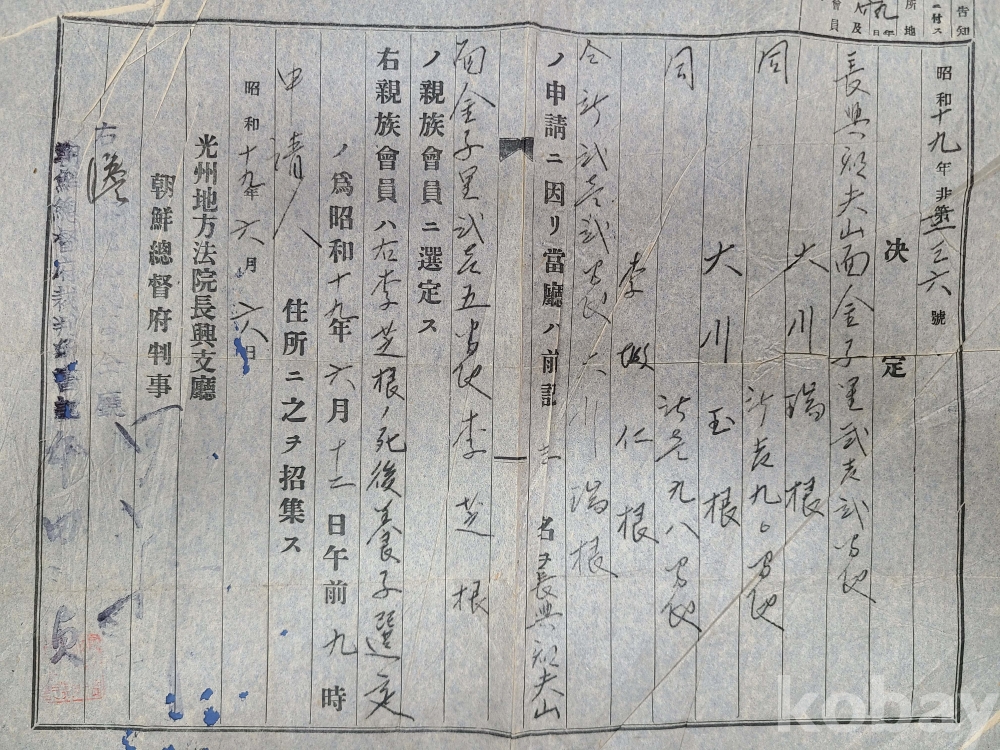 告知
ニ付ス
所地
昭和十九年 非第三三六號
決定
長興郡夫山面金子里弐壱弐番地
大川瑞根
同 所壱九〇番地
大川玉根
同 所壱九八番地
李 仁根
仝所弐壱弐番地 大川瑞根
ノ申請ニ因リ當廳ハ前記三名ヲ長興郡夫山
面金子里弐壱五番地 李芝根
ノ親族會員ニ選定ス
右親族會員ハ右李芝根ノ死後養子選定
ノ爲昭和十九年六月十二日午前九時
申請人住所ニ之ヲ招集ス
昭和十九年六月六日
光州地方法院長興支廳
朝鮮總督府判事
右謄
朝鮮總督府裁判所書記
kobay